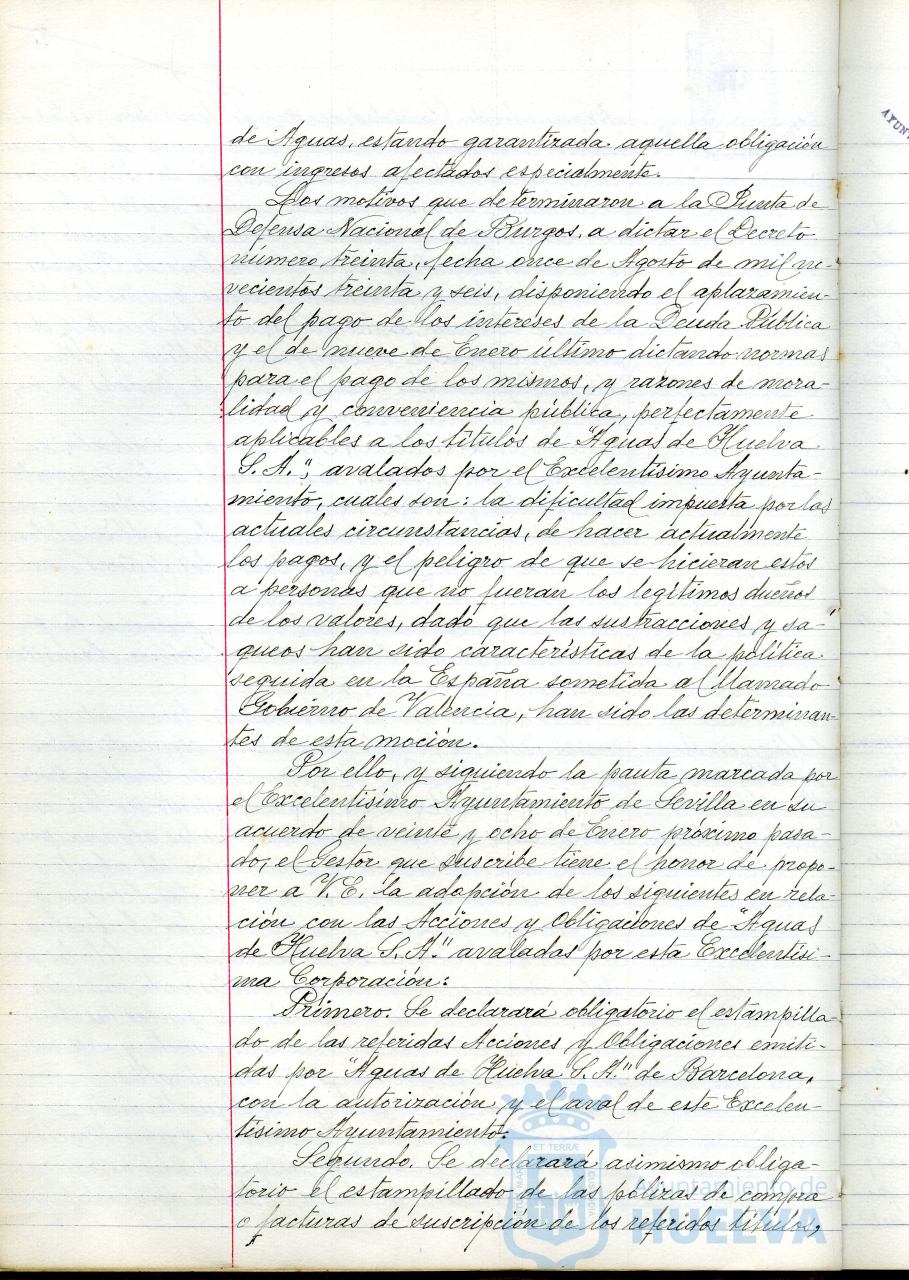 de Aguas, estando garantizada aquella obligación
con ingresos afectados especialmente.
Los motivos que determinaron a la Junta de
Defensa Nacional de Burgos, a dictar el Decreto
número treinta, fecha once de Agosto de mil no-
vecientos treinta y seis, disponiendo el aplazamien-
to del pago de los intereses de la Deuda Pública
y el de nueve de Enero último dictando normas
para el pago de los mismos, y razones de mora-
lidad y conveniencia pública, perfectamente
aplicables a los títulos de "Aguas de Huelva
S. A.", avalados por el Excelentísimo Ayunta-
miento, cuales son: la dificultad impuesta por las
actuales circunstancias, de hacer actualmente
los pagos, y el peligro de que se hicieran estos
a personas que no fueran los legítimos dueños
de los valores, dado que las sustracciones y sa-
queos han sido características de la política
seguida en la España sometida al llamado
Gobierno de Valencia, han sido las determinan-
tes de esta moción.
Por ello, y siguiendo la pauta marcada por
el Excelentísimo Ayuntamiento de Sevilla en su
acuerdo de veinte y ocho de Enero próximo pasa-
do, el Gestor que suscribe tiene el honor de propo-
ner a V. E. la adopción de los siguientes en rela-
ción con las Acciones y Obligaciones de "Aguas
de Huelva S. A." avaladas por esta Excelentísi-
ma Corporación:
Primero. Se declarará obligatorio el estampilla-
do de las referidas Acciones y Obligaciones emiti-
das por "Aguas de Huelva S. A." de Barcelona,
con la autorización y el aval de este Excelen-
tísimo Ayuntamiento.
Segundo. Se declarará asimismo obliga-
torio el estampillado de las pólizas de compra
o facturas de suscripción de los referidos títulos,
AYUN
ET TERRÆ
Ayuntamiento de
HUELVA